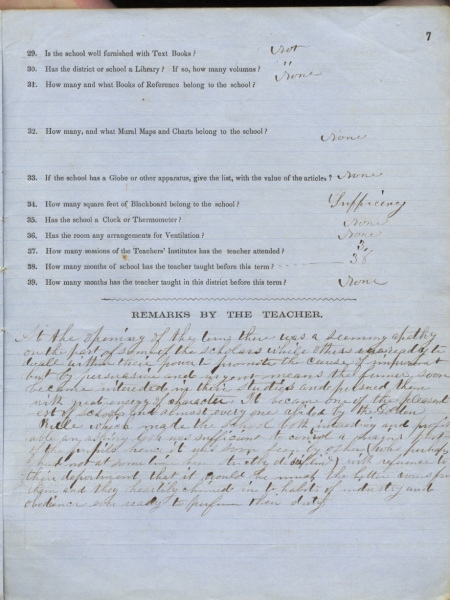 7
29. Is the school well furnished with Text Books? Not
30. Has the district or school a Library? If so, how many volumes? "
31. How many and what Books of Reference belong to the school? None
32. How many, and what Mural Maps and Charts belong to the school? None
33. If the school has a Globe or other apparatus, give the list, with the value of the articles? None
34. How many square feet of Blackboard belong to the school?
35. Has the school a Clock or Thermometer? None
36. Has the room any arrangements for Ventilation? None
37. How many sessions of the Teachers' Institutes has the teacher attended? 3
38. How many months of school has the teacher taught before this term? 38
39. How many months has the teacher taught in this district before this term? None
REMARKS BY THE TEACHER.
At the opening of the term there was a seeming apathy
on the part of some of the scholars while others
all within their power to promote the cause of improvement
by means the former soon
became interested in their studies and pursued them
with great energy of character. It became one of the pleasant
est of schools and almost every one abided by the Golden
Rule which made the school both interesting and profit
able an asking look was sufficient to control a
of the pupils hence it was soon seen by others (who perhaps
had not at some time been strictly ) with reference to
their deportment, that it would be much the better
them and they heartily chimed in to habits of industry and
obedience ever ready to perform their duty.